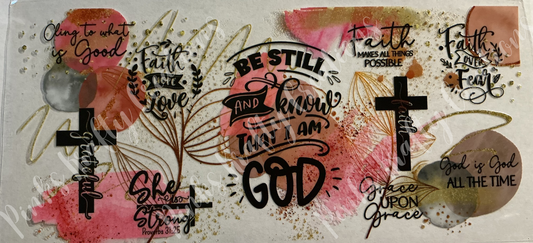 Cling to what
is Good
Faith
Love
Grateful
She
is
Strong
Proverbs 31:25
BE STILL
AND know
THAT I AM
GOD
Faith
MAKES ALL THINGS
POSSIBLE
faith
Grace
UPON
Grace
Faith
OVER
Fear
God is God
ALL THE TIME